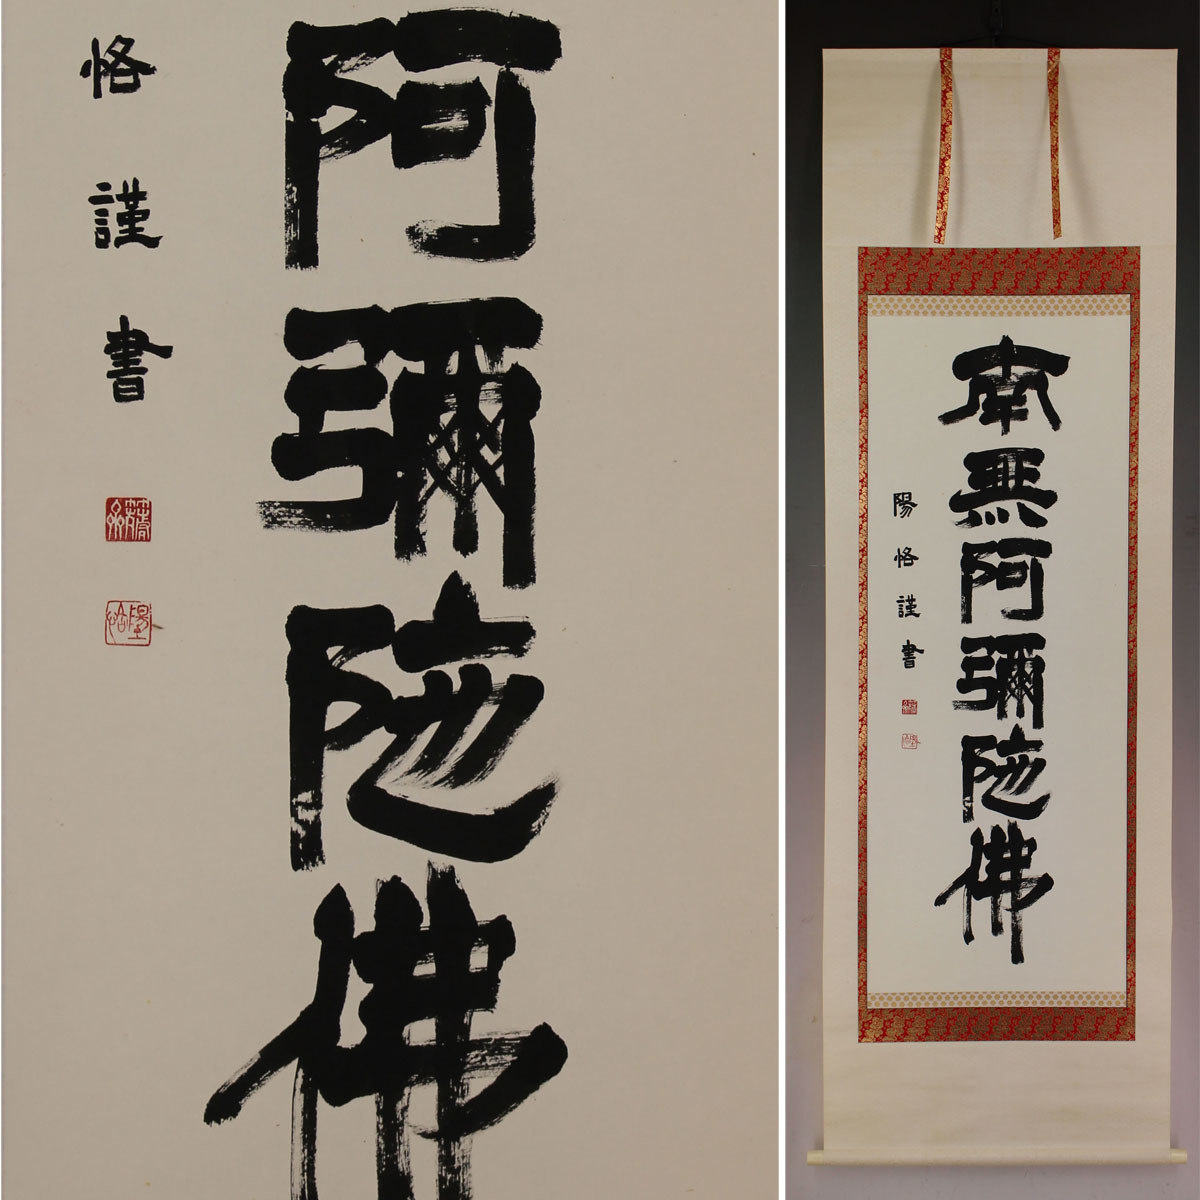 阿彌陀佛
恪謹書
南無阿彌陀佛
陽恪謹書